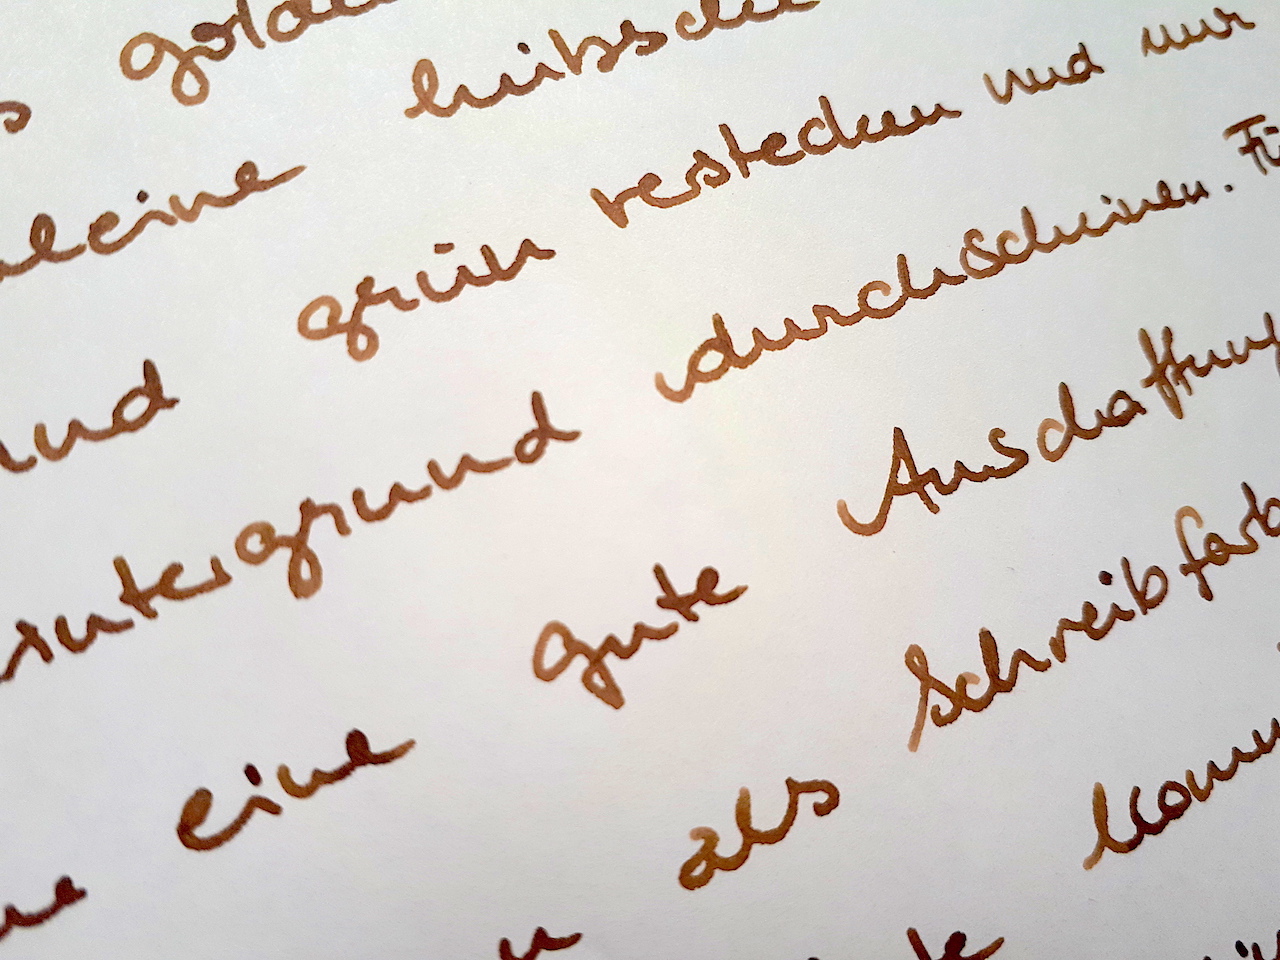 hübsche
kleine
und grün verstecken und nur
hintergrund durchscheinen. Für
eine gute Anschaffung
als Schreibfarb
komm